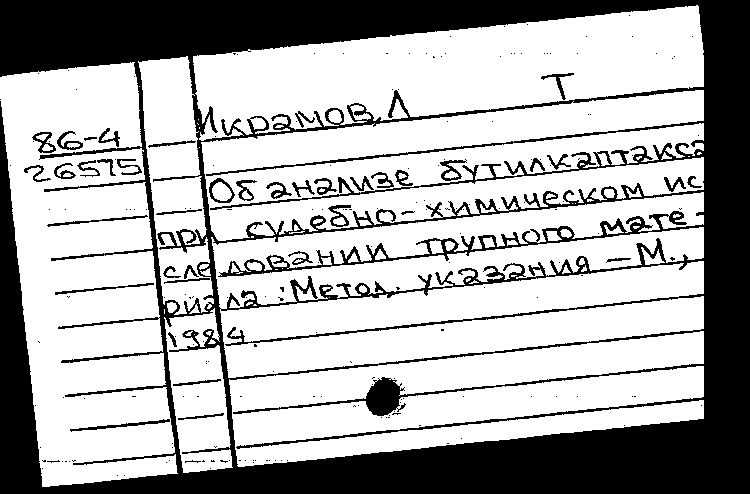 86-4
26575
Икрамов, Л Т
Об анализе бутилкаптакса
при судебно-химическом ис
следовании трупного мате-
риала : Метод. указания – М.,
1984.